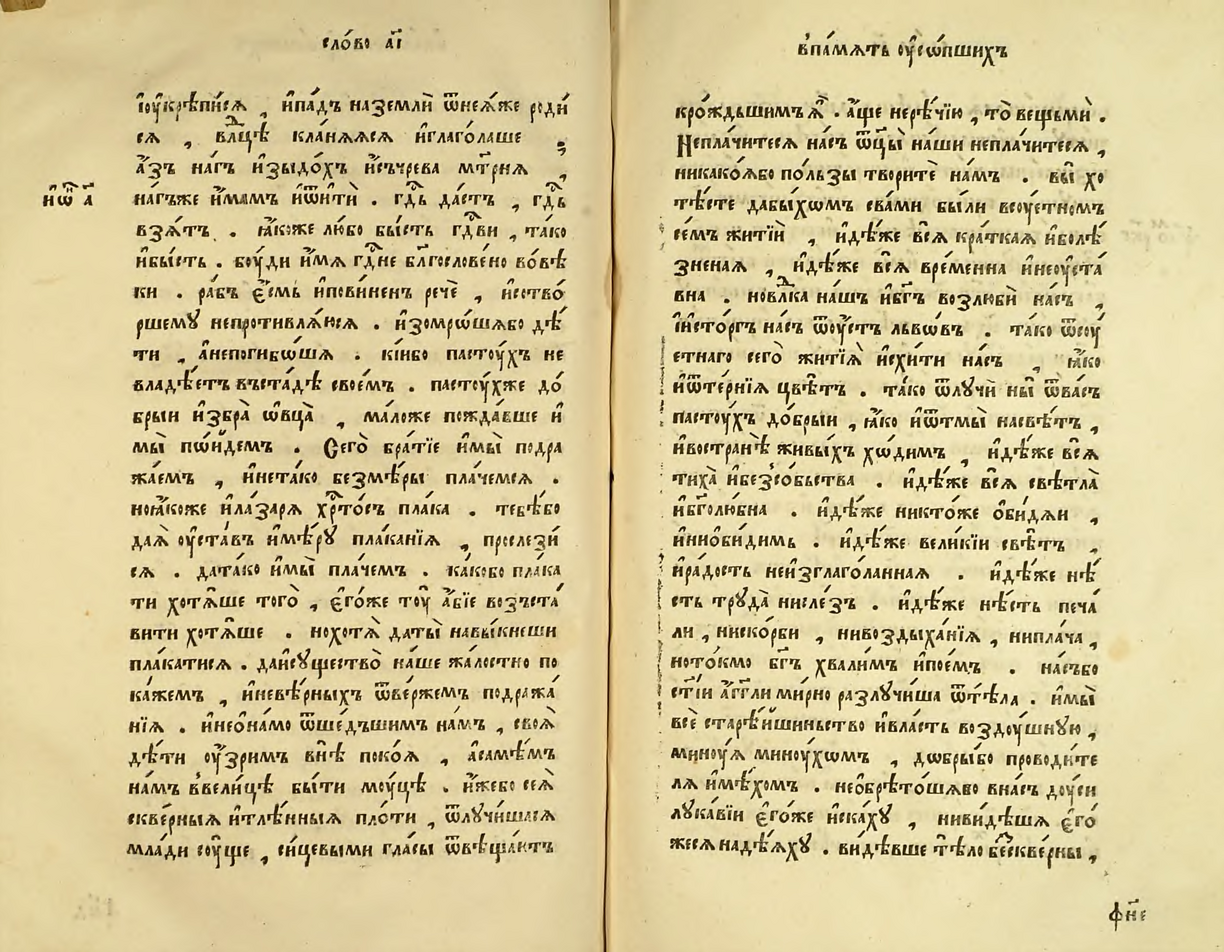 сло́во а҃і
і҆оу҆крѣписѧ , и҆па́дъ наземлѝ ѿнеѧ́же роди
сѧ , влⷣцѣ клáнѧѧсѧ и҆глаго́лаше
а҆́зъ нáгъ и҆зыдо́хъ и҆съчре́ва мт҃рнѧ ,
и҆ѡ҆в а҃
на́гъже и҆́мамъ и҆ѿити̑ . гдⷭ҇ь да́стъ , гдⷭ҇ь
взѧ́тъ . ꙗ҆́коже лю́бо бы́сть гдⷭ҇ви , та́ко
и҆бы́сть . бꙋ́ди и҆́мѧ гдⷭ҇не блгⷭ҇ослове́но во́вѣ
ки . ра́бъ є҆́смь и҆пови́ненъ рече̑ , и҆ство́
ршемꙋ̀ непроти́влѧюсѧ . и҆зомрѡ́шѧбо дѣ́
ти , а҆непоги́бѡшѧ . кі́ибо пастоу́хъ не
владѣ́етъ въста́дѣ свое́мъ . пастоу́хже до́
брыи и҆збра̀ ѡ҆вца̀ , ма́ложе пожда́вше и҆
мы̀ по́йдемъ . Сего̀ бра́тїе и҆мы̀ подра
жа́емъ , и҆нета́ко безмѣ́ры пла́чемсѧ .
ноꙗ҆́коже и҆ла́зарѧ хрⷭ҇то́съ пла́ка . тебѣ́бо
даѧ̀ оу҆ста́въ и҆мѣ́рꙋ пла́канїѧ , прослези́
сѧ . datáко и҆мы̀ пла́чемъ . ка́кобо пла́ка
ти хотѧ́ше того̀ , є҆го́же тоу̀ а҆́бїе возъста́
вити хотѧ́ше . нохотѧ̀ даты̀ навы́кнеши
пла́катисѧ . даи҆сꙋщество̀ на́ше жа́лостно по
ка́жемъ , и҆невѣ́рныхъ ѿве́ржемъ подража́
нїѧ . и҆нео҆на́мо ѿше́дъшимъ на́мъ , своѧ̀
дѣ́ти оу҆́зримъ внѣ̀ поко́ѧ , а҆самѣ́мъ
на́мъ в̾вели́цѣ бы́ти мо́уцѣ . и҆́жебо сеѧ̀
скве́рныѧ и҆тлѣ́нныѧ пло́ти , ѿлꙋчи́шасѧ
мла́ди соу́ще , си́цевыми гла́сы ѿвѣща́ютъ
в̾па́мѧть оу҆со́пшихъ
кро́ждьшимъꙗ҆̀ . а҆́ще нерѣ́чїю , то̀ ве́щьми .
Непла́читесѧ на́съ ѿцы̀ на́ши непла́читесѧ ,
никако́ѧбо по́льзы твори́те на́мъ . вы̀ хо
тѣ́сте дабы́хѡмъ сва́ми бы́ли всоу́етномъ
се́мъ житїи̑ , и҆дѣ́же всѧ̀ кра́ткаѧ и҆болѣ́
зненаѧ , и҆дѣ́же всѧ̀ вре́менна и҆неоу҆ста́
вна . новлⷣка на́шъ и҆бг҃ъ возлюбѝ на́съ ,
и҆исто́ргъ на́съ ѿоу҆́стъ льво́въ . та́ко ѿсоу́
етнаго сего̀ житїѧ̀ и҆схи́ти на́съ , ꙗ҆́ко
и҆ѿте́рнїѧ цвѣ́тъ . та́ко ѿлꙋчѝ ны̀ ѿва́съ
пасто́ухъ до́брыи , ꙗ҆́ко и҆ѿтмы̀ насвѣ́тъ ,
и҆востра́нѣ живы́хъ хо́димъ , и҆дѣ́же всѧ̀
тиха̀ и҆безсо́бьства . и҆дѣ́же всѧ̀ свѣ́тла
и҆бг҃олю́бна . и҆дѣ́же никто́же о҆би́дѧи ,
и҆нио҆би́димь . и҆дѣ́же вели́кїи свѣ́тъ ,
и҆ра́дость неи҆зглаго́ланнаѧ . и҆дѣ́же нѣ́
сть трꙋда̀ нисле́зъ . и҆дѣ́же нѣ́сть печа́
ли , ниско́рби , нивоздыха́нїѧ , нипла́ча ,
ното́кмо бг҃ъ хва́лимъ и҆пое́мъ . на́събо
ст҃і́и а҆́гг҃ли ми́рно разлꙋчи́ша ѿтѣ́ла . и҆мы̀
всѐ старѣ́йшиньство и҆вла́сть воздоу́шнꙋю ,
миноу́ѧ миноу́хѡмъ , до́брыбо проводи́те
лѧ и҆мѣ́хом . необрѣ́тошѧбо вна́съ дꙋ́си
лꙋка́вїи є҆го́же и҆ска́хꙋ , ниви́дѣшѧ є҆го́
жесѧ надѣ́ѧхꙋ . ви́дѣвше тѣ́ло бескве́рны ,
фн҃е